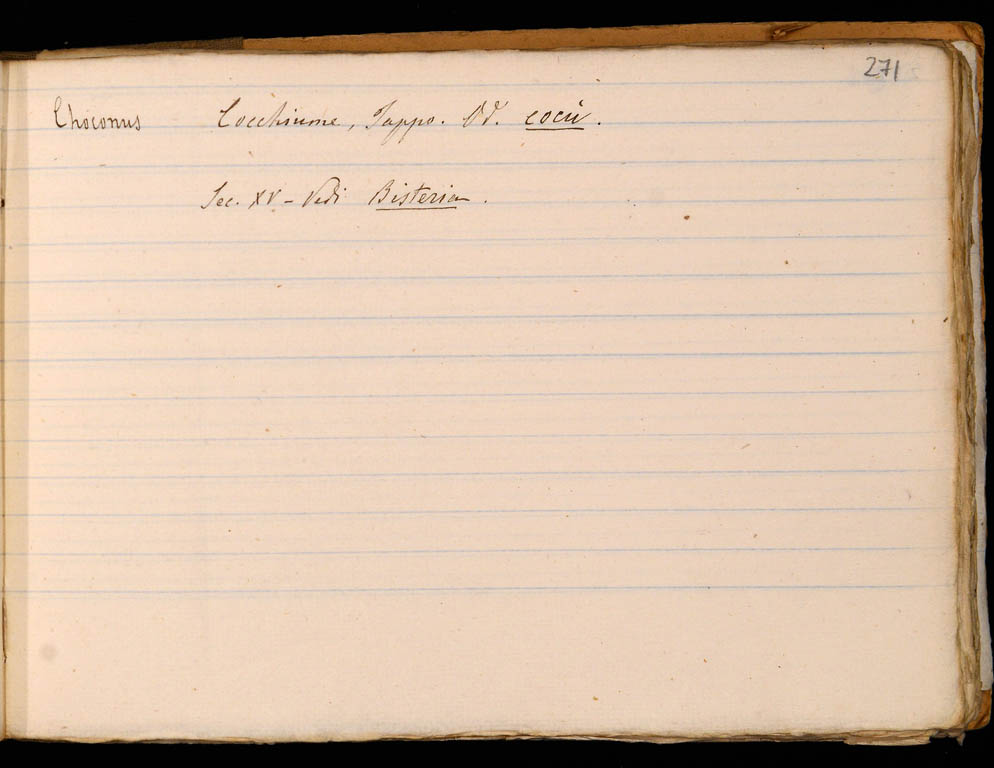 271
Choconus Cocchiume, Tappo. Od. cocù.
Sec. XV - Vedi Bisteria.